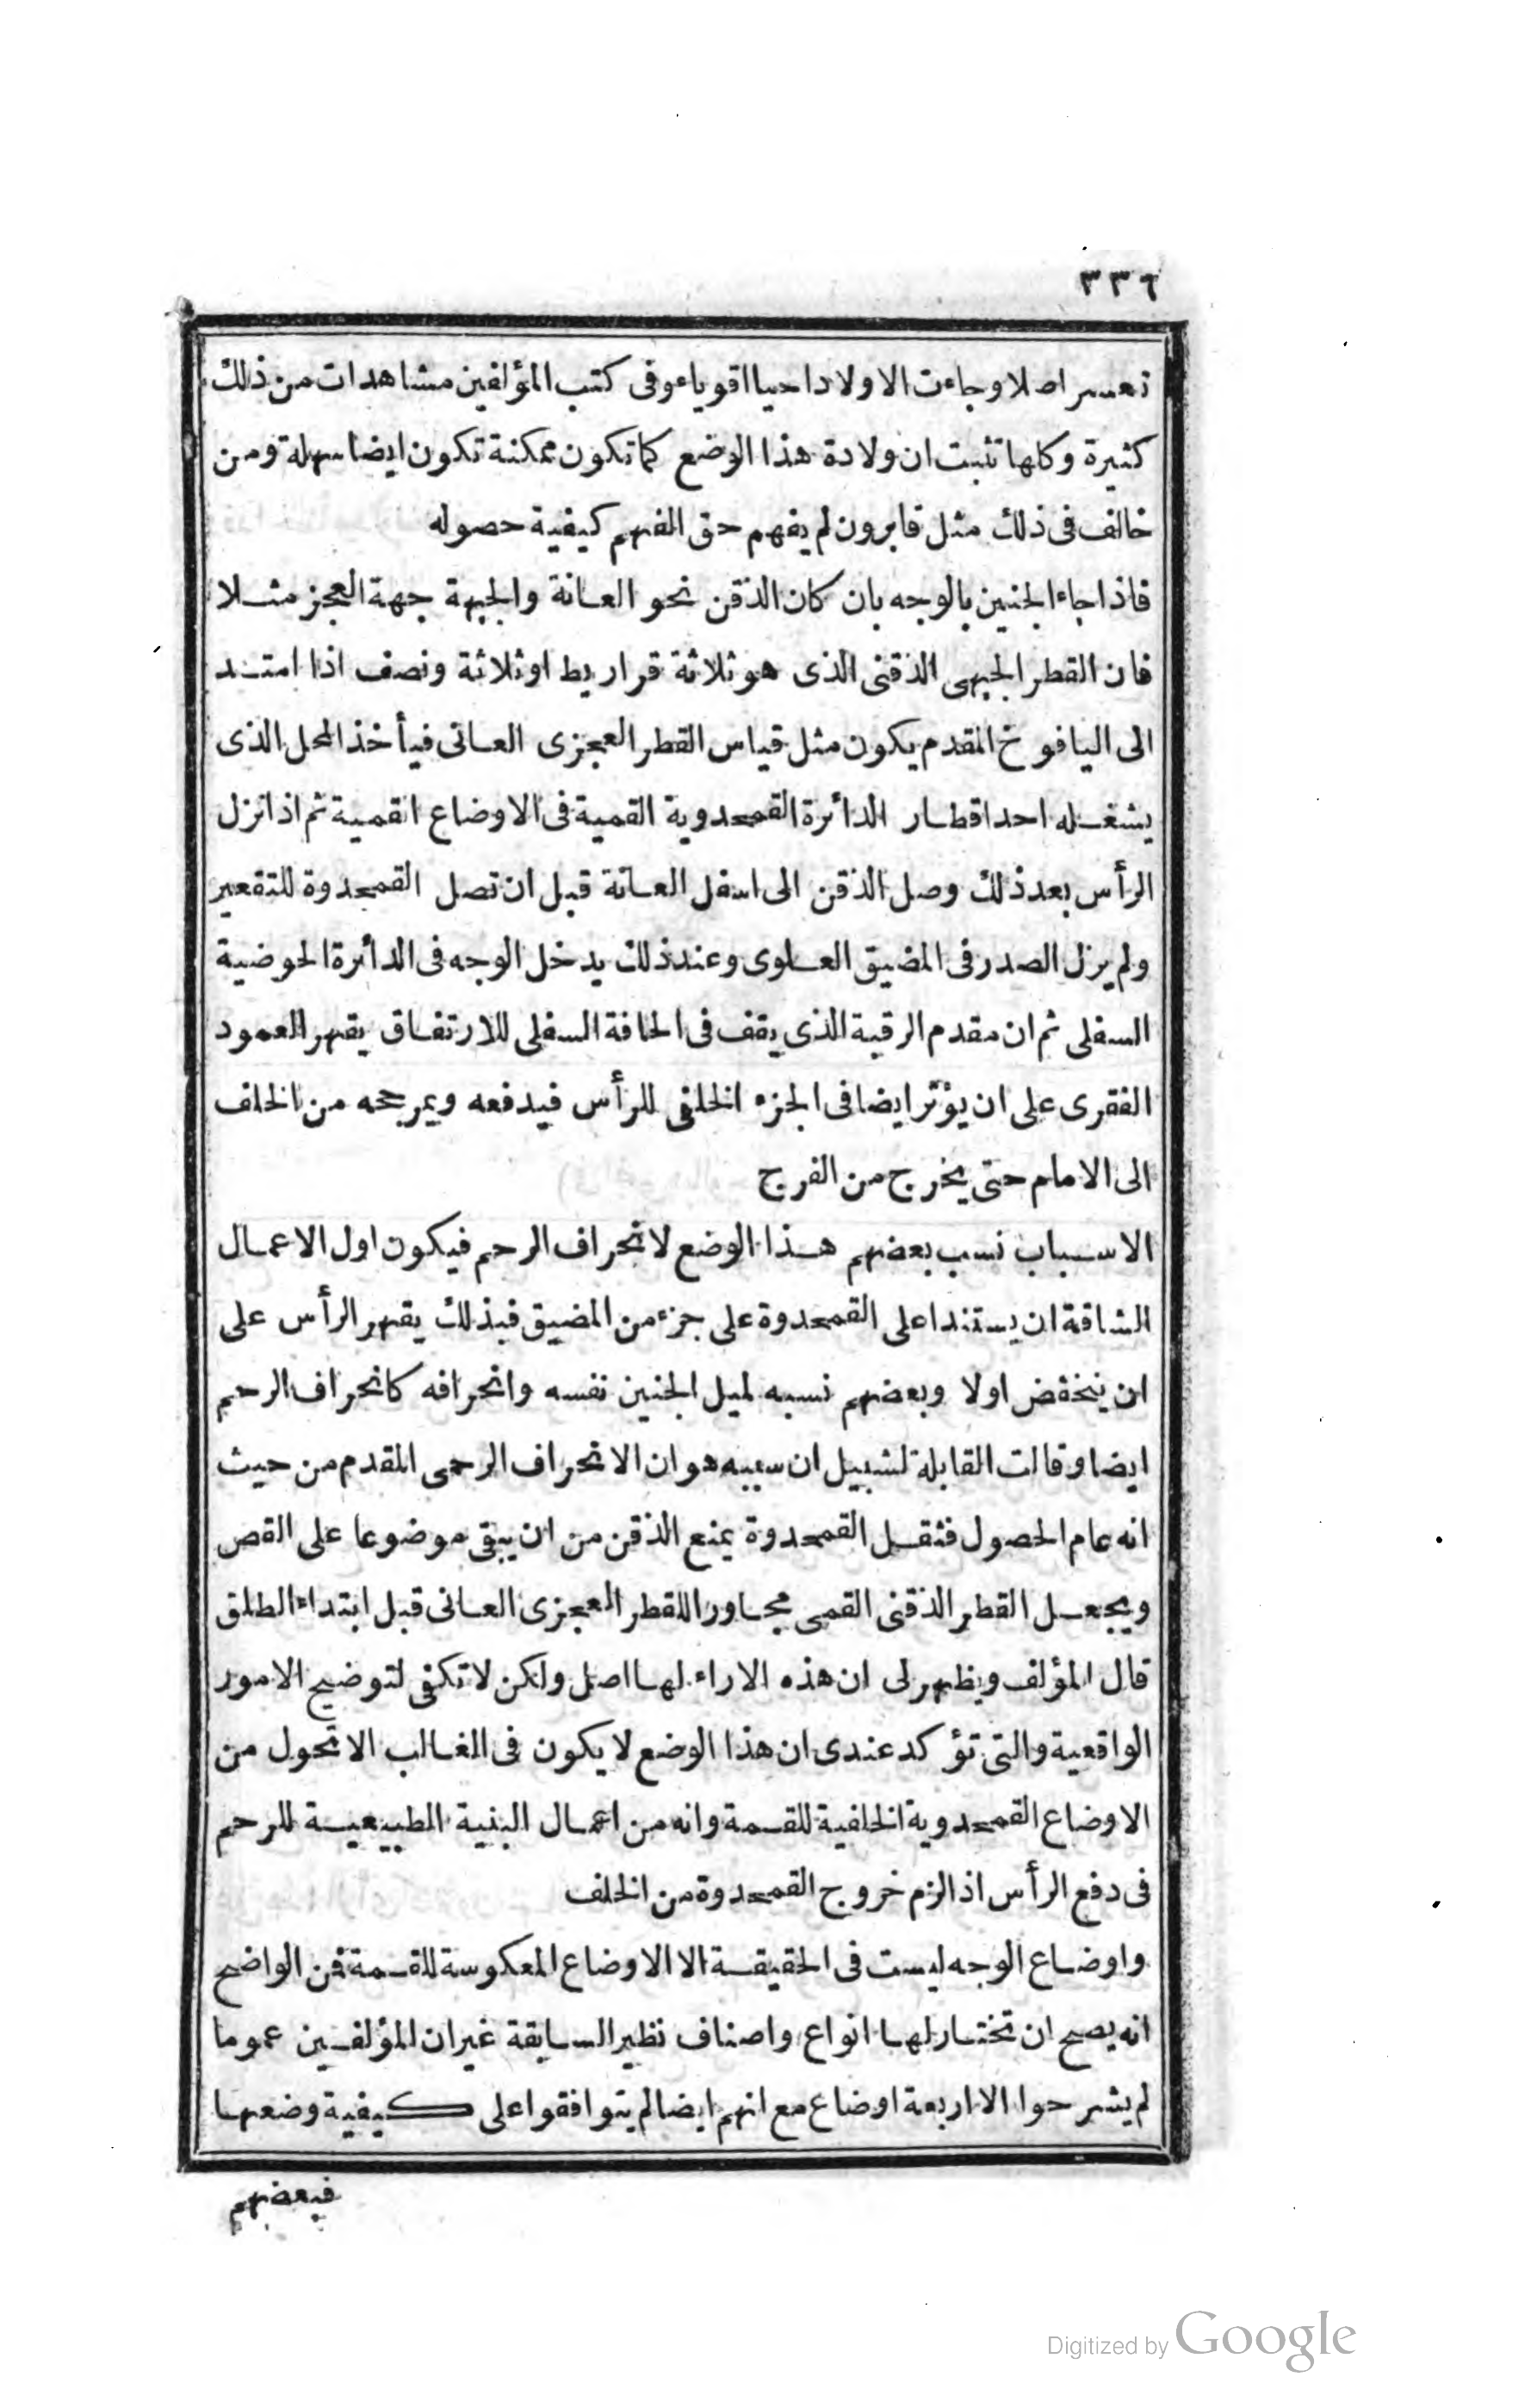 ٣٣٦
تعسر اصلا وجاءت الاولاد احيا اقوياء وفى كتب المؤلفين مشاهدات من ذلك
كثيرة وكلها تثبت ان ولادة هذا الوضع كما تكون ممكنة تكون ايضا سهلة ومن
خالف فى ذلك مثل قابرون لم يفهم حق الفهم كيفية حصوله
فاذا جاء الجنين بالوجه بان كان الذقن نحو العانة والجبهة جهة العجز مثلا
فان القطر الجبهى الذقنى الذى هو ثلاثة قراريط او ثلاثة ونصف اذا امتد
الى اليافوخ المقدم يكون مثل قياس القطر العجزى العانى فيأخذ المحل الذى
يشغله احد اقطار الدائرة القمحدوية القمية فى الاوضاع القمية ثم اذا نزل
الرأس بعد ذلك وصل الذقن الى اسفل العانة قبل ان تصل القمحدوة للتقعير
ولم يزل الصدر فى المضيق العلوى وعند ذلك يدخل الوجه فى الدائرة الحوضية
السفلى ثم ان مقدم الرقبة الذى يقف فى الحافة السفلى للارتفاق يقهر العمود
الفقرى على ان يؤثر ايضا فى الجزء الخلفى للرأس فيدفعه ويمرجحه من الخلف
الى الامام حتى يخرج من الفرج
الاسباب نسب بعضهم هذا الوضع لانحراف الرحم فيكون اول الاعمال
الشاقة ان يستندا على القمحدوة على جزء من المضيق فبذلك يقهر الرأس على
ان ينخفض اولا وبعضهم نسبه لميل الجنين نفسه وانحرافه كانحراف الرحم
ايضا وقالت القابلة لشبيل ان سببه هو ان الانحراف الرحمى المقدم من حيث
انه عام الحصول فثقل القمحدوة يمنع الذقن من ان يبقى موضوعا على القص
ويجعل القطر الذقنى القمى مجاورا للقطر العجزى العانى قبل ابتداء الطلق
قال المؤلف ويظهر لى ان هذه الاراء لها اصل ولكن لا تكفى لتوضيح الامور
الواقعية والتى تؤكد عندى ان هذا الوضع لا يكون فى الغالب الا تحول من
الاوضاع القمحدوية الخلفية للقمة وانه من اعمال البنية الطبيعية للرحم
فى دفع الرأس اذا لزم خروج القمحدوة من الخلف
واوضاع الوجه ليست فى الحقيقة الا الاوضاع المعكوسة للقمة فمن الواضح
انه يصح ان تختار لها انواع واصناف نظير السابقة غير ان المؤلفين عموما
لم يشرحوا الا اربعة اوضاع مع انهم ايضا لم يتوافقوا على كيفية وضعها
فبعضهم
Digitized by Google